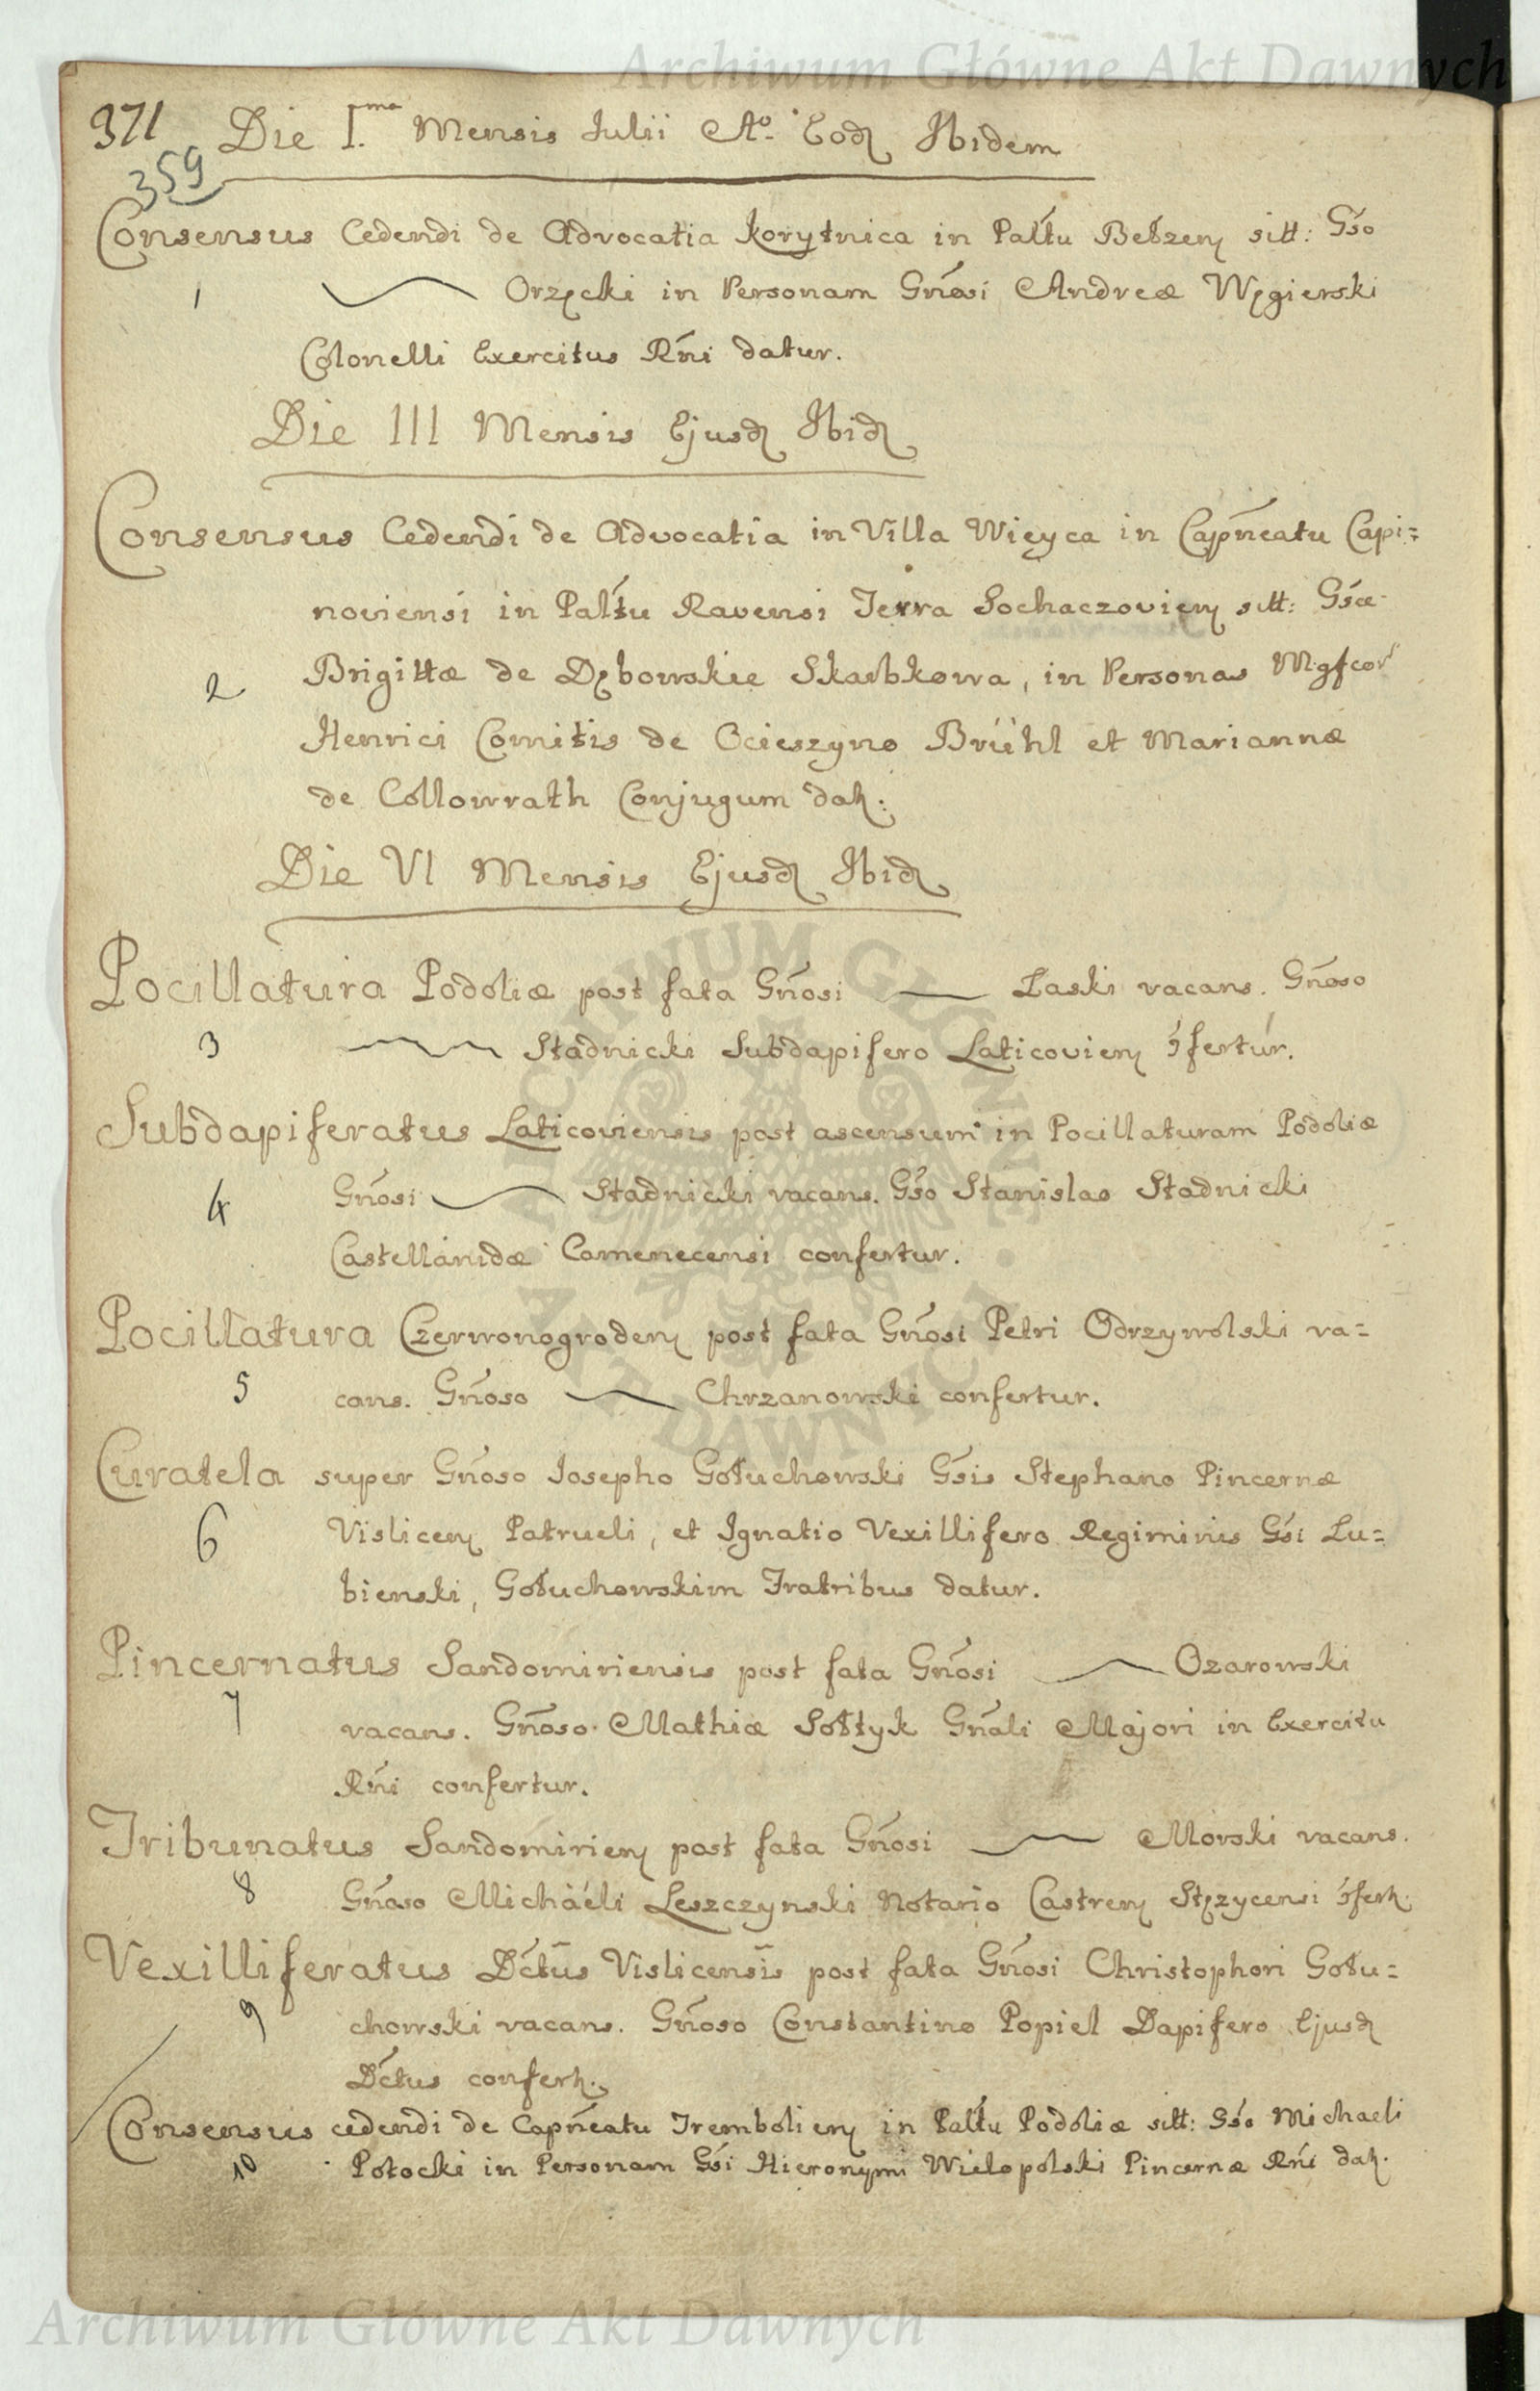 Archiwum Główne Akt Dawnych
371 Die I.ma Mensis Julii Ao. Eod. Ibidem
359
Consensus Cedendi de Advocatia Korytnica in Paltu Bełzen sitt: Gso
1 Orzęcki in Personam Gnosi Andreæ Węgierski
Colonelli Exercitus Rni datur.
Die III Mensis Ejusd Ibid
Consensus Cedendi de Advocatia in Villa Wieyca in Capneatu Capi=
noviensi in Paltu Ravensi Terra Sochaczovien sitt: Gsæ
2 Brigittæ de Dębowskie Skarbkowa, in Personas Mgfcor
Henrici Comitis de Ocieszyno Brühl et Mariannæ
de Collowrath Conjugum dat.
Die VI Mensis Ejusd Ibid
Pocillatura Podoliæ post fata Gnosi Łaski vacans. Gnoso
3 Stadnicki Subdapifero Laticovien ɔfertur.
Subdapiferatus Laticoviensis post ascensum in Pocillaturam Podoliæ
4 Gnosi Stadnicki vacans. Gso Stanislao Stadnicki
Castellanidæ Camenecensi confertur.
Pocillatura Czerwonogroden post fata Gnosi Petri Odrzywolski va=
5 cans. Gnoso Chrzanowski confertur.
Curatela super Gnoso Josepho Gołuchowski Gsis Stephano Pincernæ
6 Vislicen Patrueli, et Ignatio Vexillifero Regiminis Gsi Łu=
bienski, Gołuchowskim Fratribus datur.
Pincernatus Sandomiriensis post fata Gnosi Ozarowski
7 vacans. Gnoso Mathiæ Sołtyk Gnali Majori in Exercitu
Rni confertur.
Tribunatus Sandomirien post fata Gnosi Morski vacans.
8 Gnoso Michaeli Leszczynski Notario Castren Stęzycensi ɔfert.
Vexilliferatus Dctus Vislicensis post fata Gnosi Christophori Gołu=
9 chowski vacans. Gnoso Constantino Popiel Dapifero Ejusd
Dctus confert.
Consensus cedendi de Capneatu Trembolien in Paltu Podoliæ sitt: Gso Michaeli
10 Potocki in Personam Gsi Hieronymi Wielopolski Pincernæ Rni dat.
Archiwum Główne Akt Dawnych